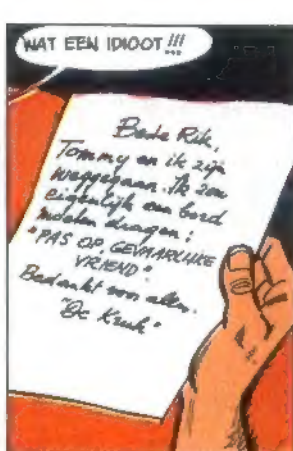 WAT EEN IDIOOT!!!
Beste Rik,
Tommy en ik zijn
weggegaan. Ik zou
eigenlijk een bord
moeten dragen:
"PAS OP, GEVAARLIJKE
VRIEND".
Bedankt voor alles.
"De Kruk"